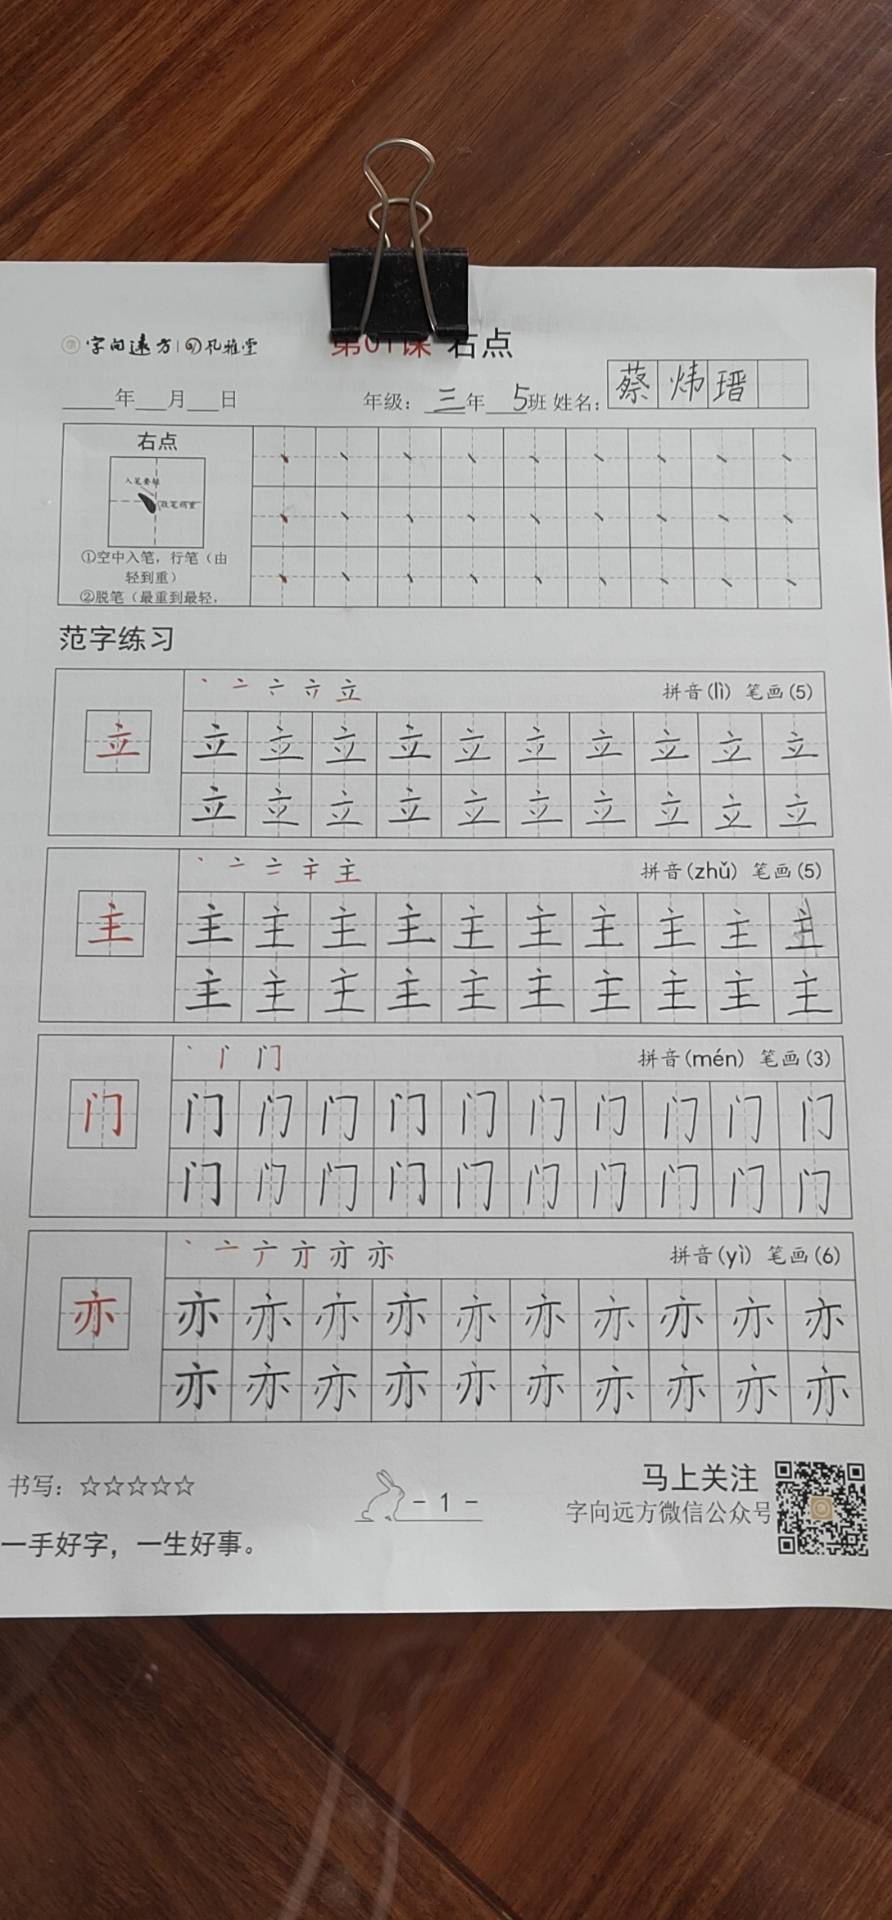 字向远方 | 孔雅堂
第01课 右点
____年___月___日 年级：三年 5班 姓名：蔡炜瑨
右点
入笔要轻
收笔稍重
①空中入笔，行笔（由
轻到重）
②脱笔（最重到最轻，
范字练习
立 拼音(lì) 笔画(5)
立 立 立 立 立 立 立 立 立 立 立
立 立 立 立 立 立 立 立 立 立
主 拼音(zhǔ) 笔画(5)
主 主 主 主 主 主 主 主 主 主 主
主 主 主 主 主 主 主 主 主 主
门 拼音(mén) 笔画(3)
门 门 门 门 门 门 门 门 门 门 门
门 门 门 门 门 门 门 门 门 门
亦 拼音(yì) 笔画(6)
亦 亦 亦 亦 亦 亦 亦 亦 亦 亦 亦
亦 亦 亦 亦 亦 亦 亦 亦 亦 亦
书写：☆☆☆☆☆
- 1 -
马上关注
字向远方微信公众号
一手好字，一生好事。